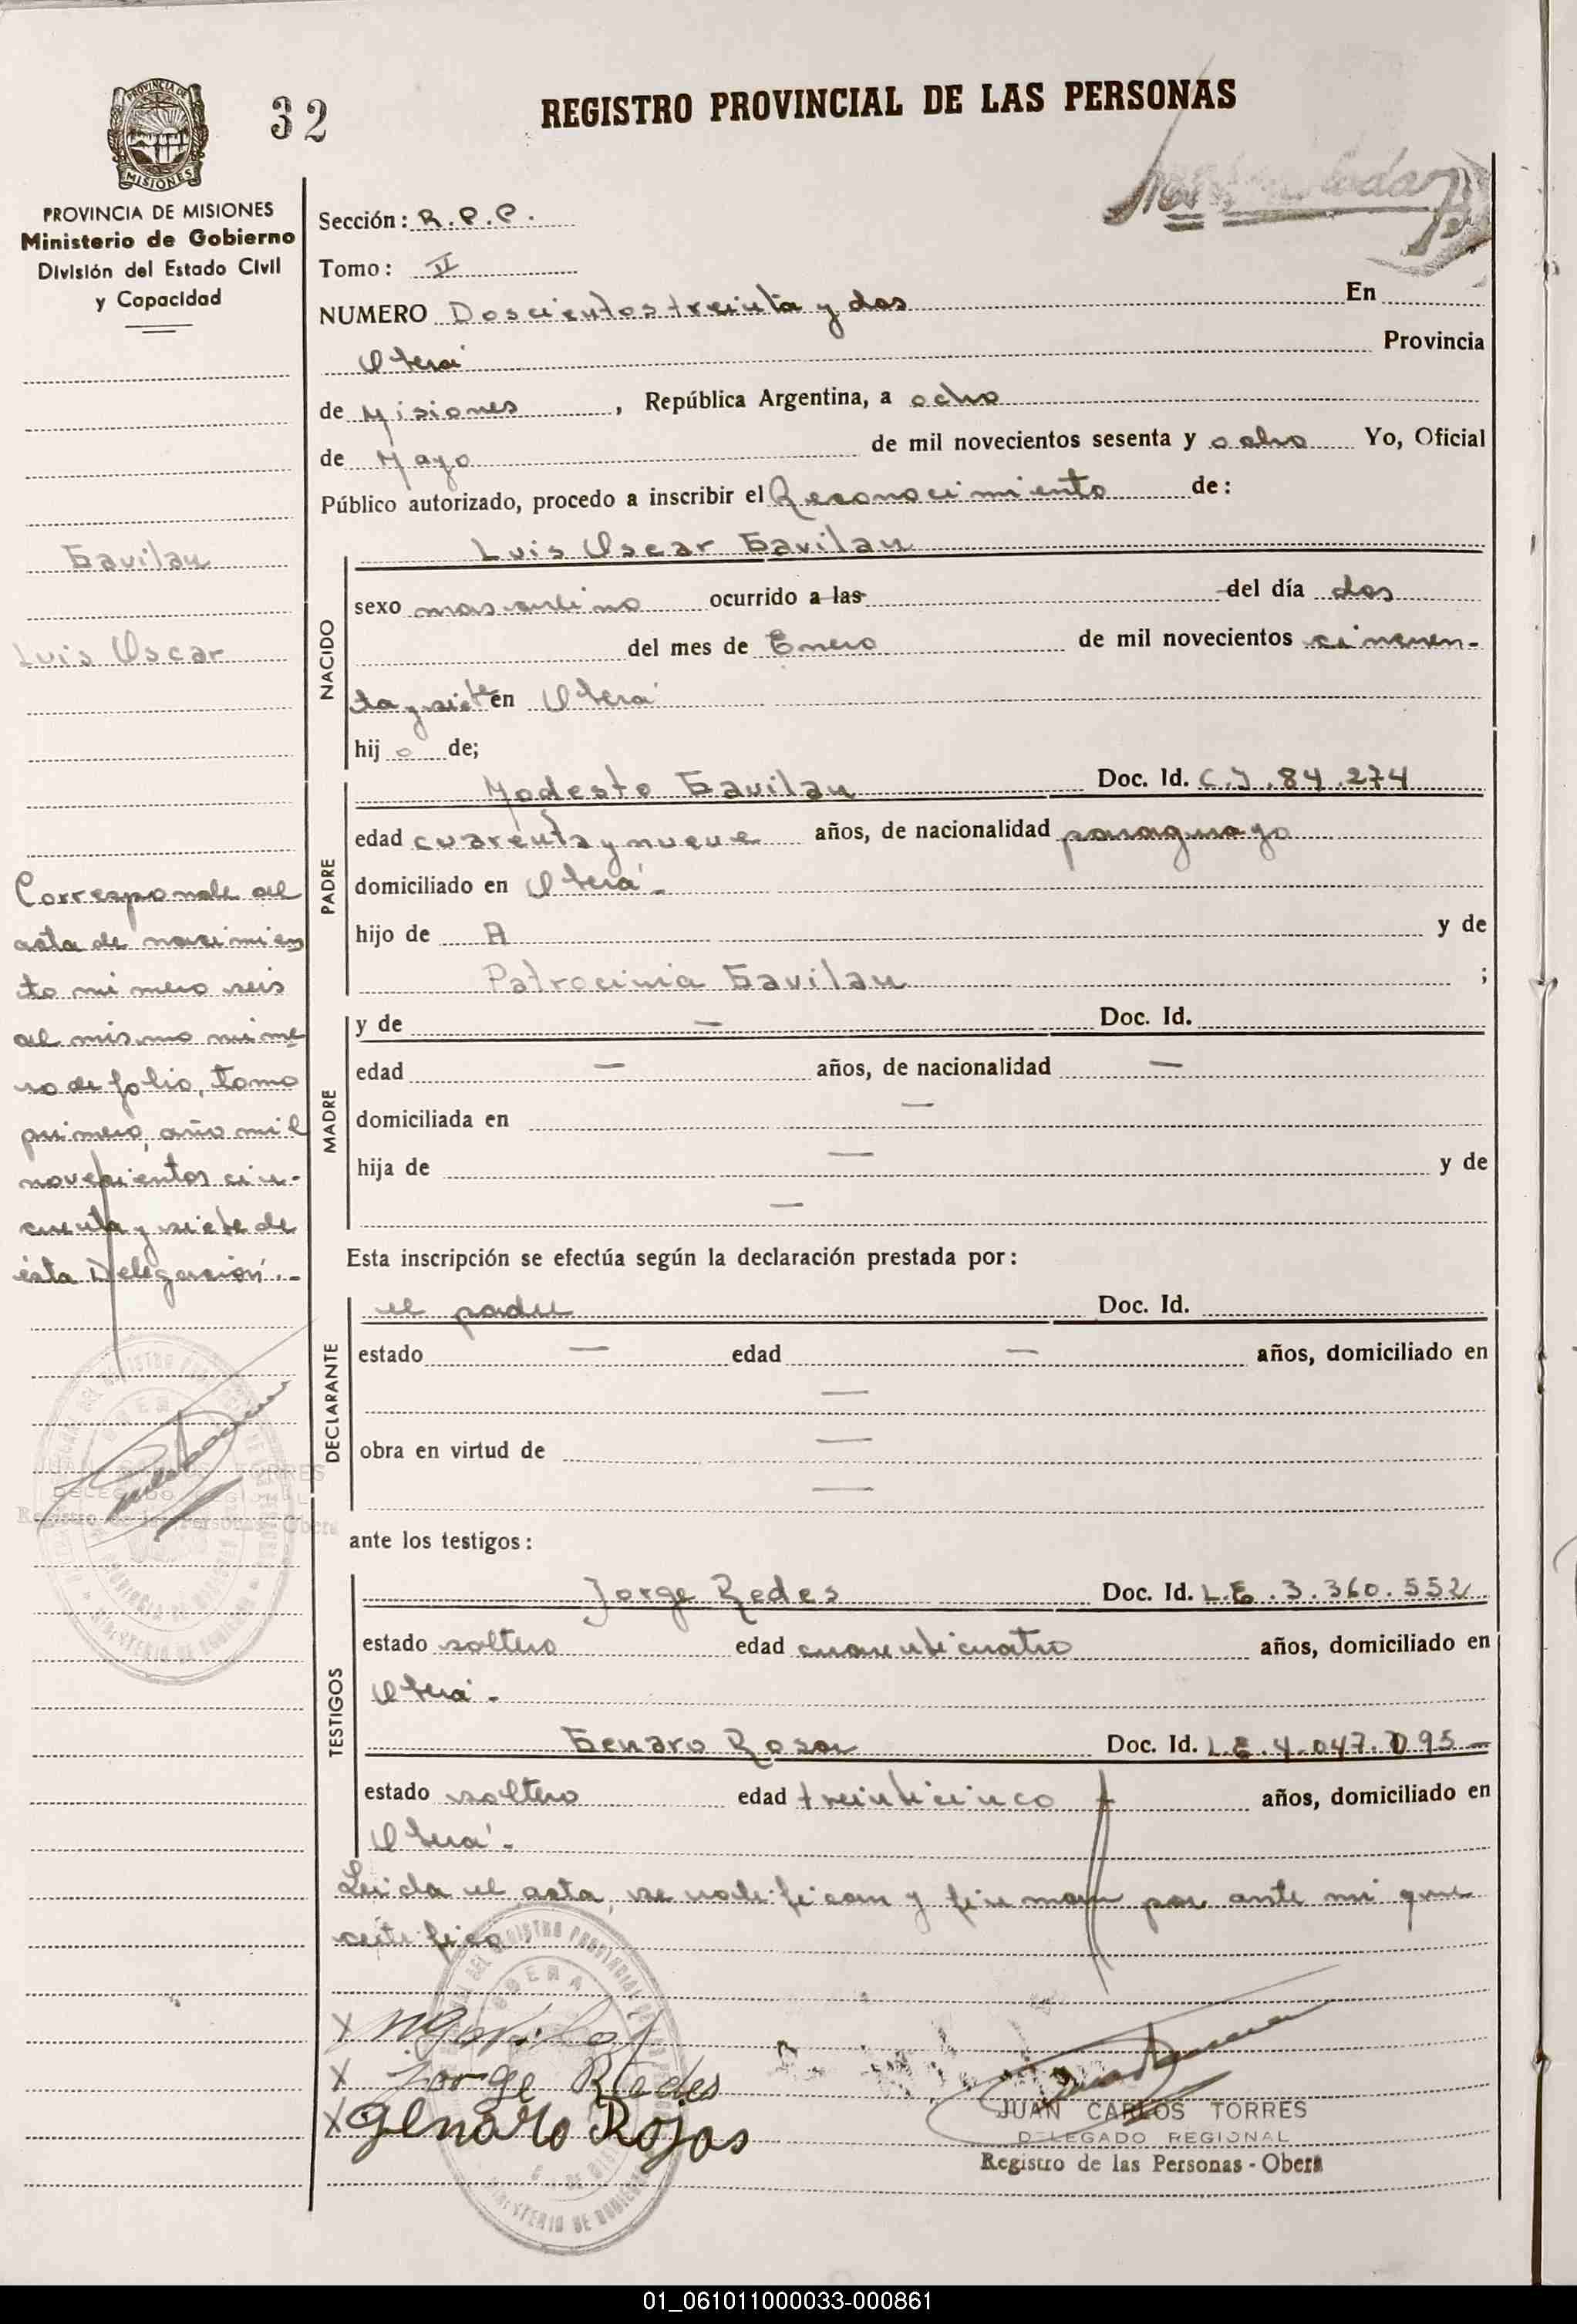 32
REGISTRO PROVINCIAL DE LAS PERSONAS
PROVINCIA DE
MISIONES
PROVINCIA DE MISIONES
Ministerio de Gobierno
División del Estado Civil
y Capacidad
Gavilan
Luis Oscar
Corresponde al
acta de nacimien
to número seis
al mismo núme
ro de folio, tomo
primero, año mil
novecientos cin-
cuenta y siete de
ésta Delegación.-
JUAN CARLOS TORRES
DELEGADO REGIONAL
Registro de las Personas - Oberá
Sección: R.P.P.
Tomo: II
NUMERO Doscientos treinta y dos En
Oberá Provincia
de Misiones, República Argentina, a ocho
de Mayo de mil novecientos sesenta y ocho Yo, Oficial
Público autorizado, procedo a inscribir el Reconocimiento de:
Luis Oscar Gavilan
NACIDO
sexo masculino ocurrido a las del día dos
del mes de Enero de mil novecientos cincuen-
ta y siete en Oberá
hij o de;
PADRE
Modesto Gavilan Doc. Id. C.I. 84.274
edad cuarenta y nueve años, de nacionalidad paraguayo
domiciliado en Oberá.-
hijo de A y de
Patrocinia Gavilan ;
MADRE
y de — Doc. Id.
edad — años, de nacionalidad —
domiciliada en —
hija de — y de
—
Esta inscripción se efectúa según la declaración prestada por:
DECLARANTE
el padre Doc. Id.
estado — edad — años, domiciliado en
—
obra en virtud de —
—
ante los testigos:
TESTIGOS
Jorge Redes Doc. Id. L.E. 3.360.552
estado soltero edad cuarenticuatro años, domiciliado en
Oberá.-
Genaro Rosa Doc. Id. L.E. 4.047.095
estado soltero edad treinticinco años, domiciliado en
Oberá.-
Leida el acta, se ratifican y firman por ante mi que
certifico
X
X Jorge Redes
X Genaro Rojas
JUAN CARLOS TORRES
DELEGADO REGIONAL
Registro de las Personas - Oberá
01_061011000033-000861